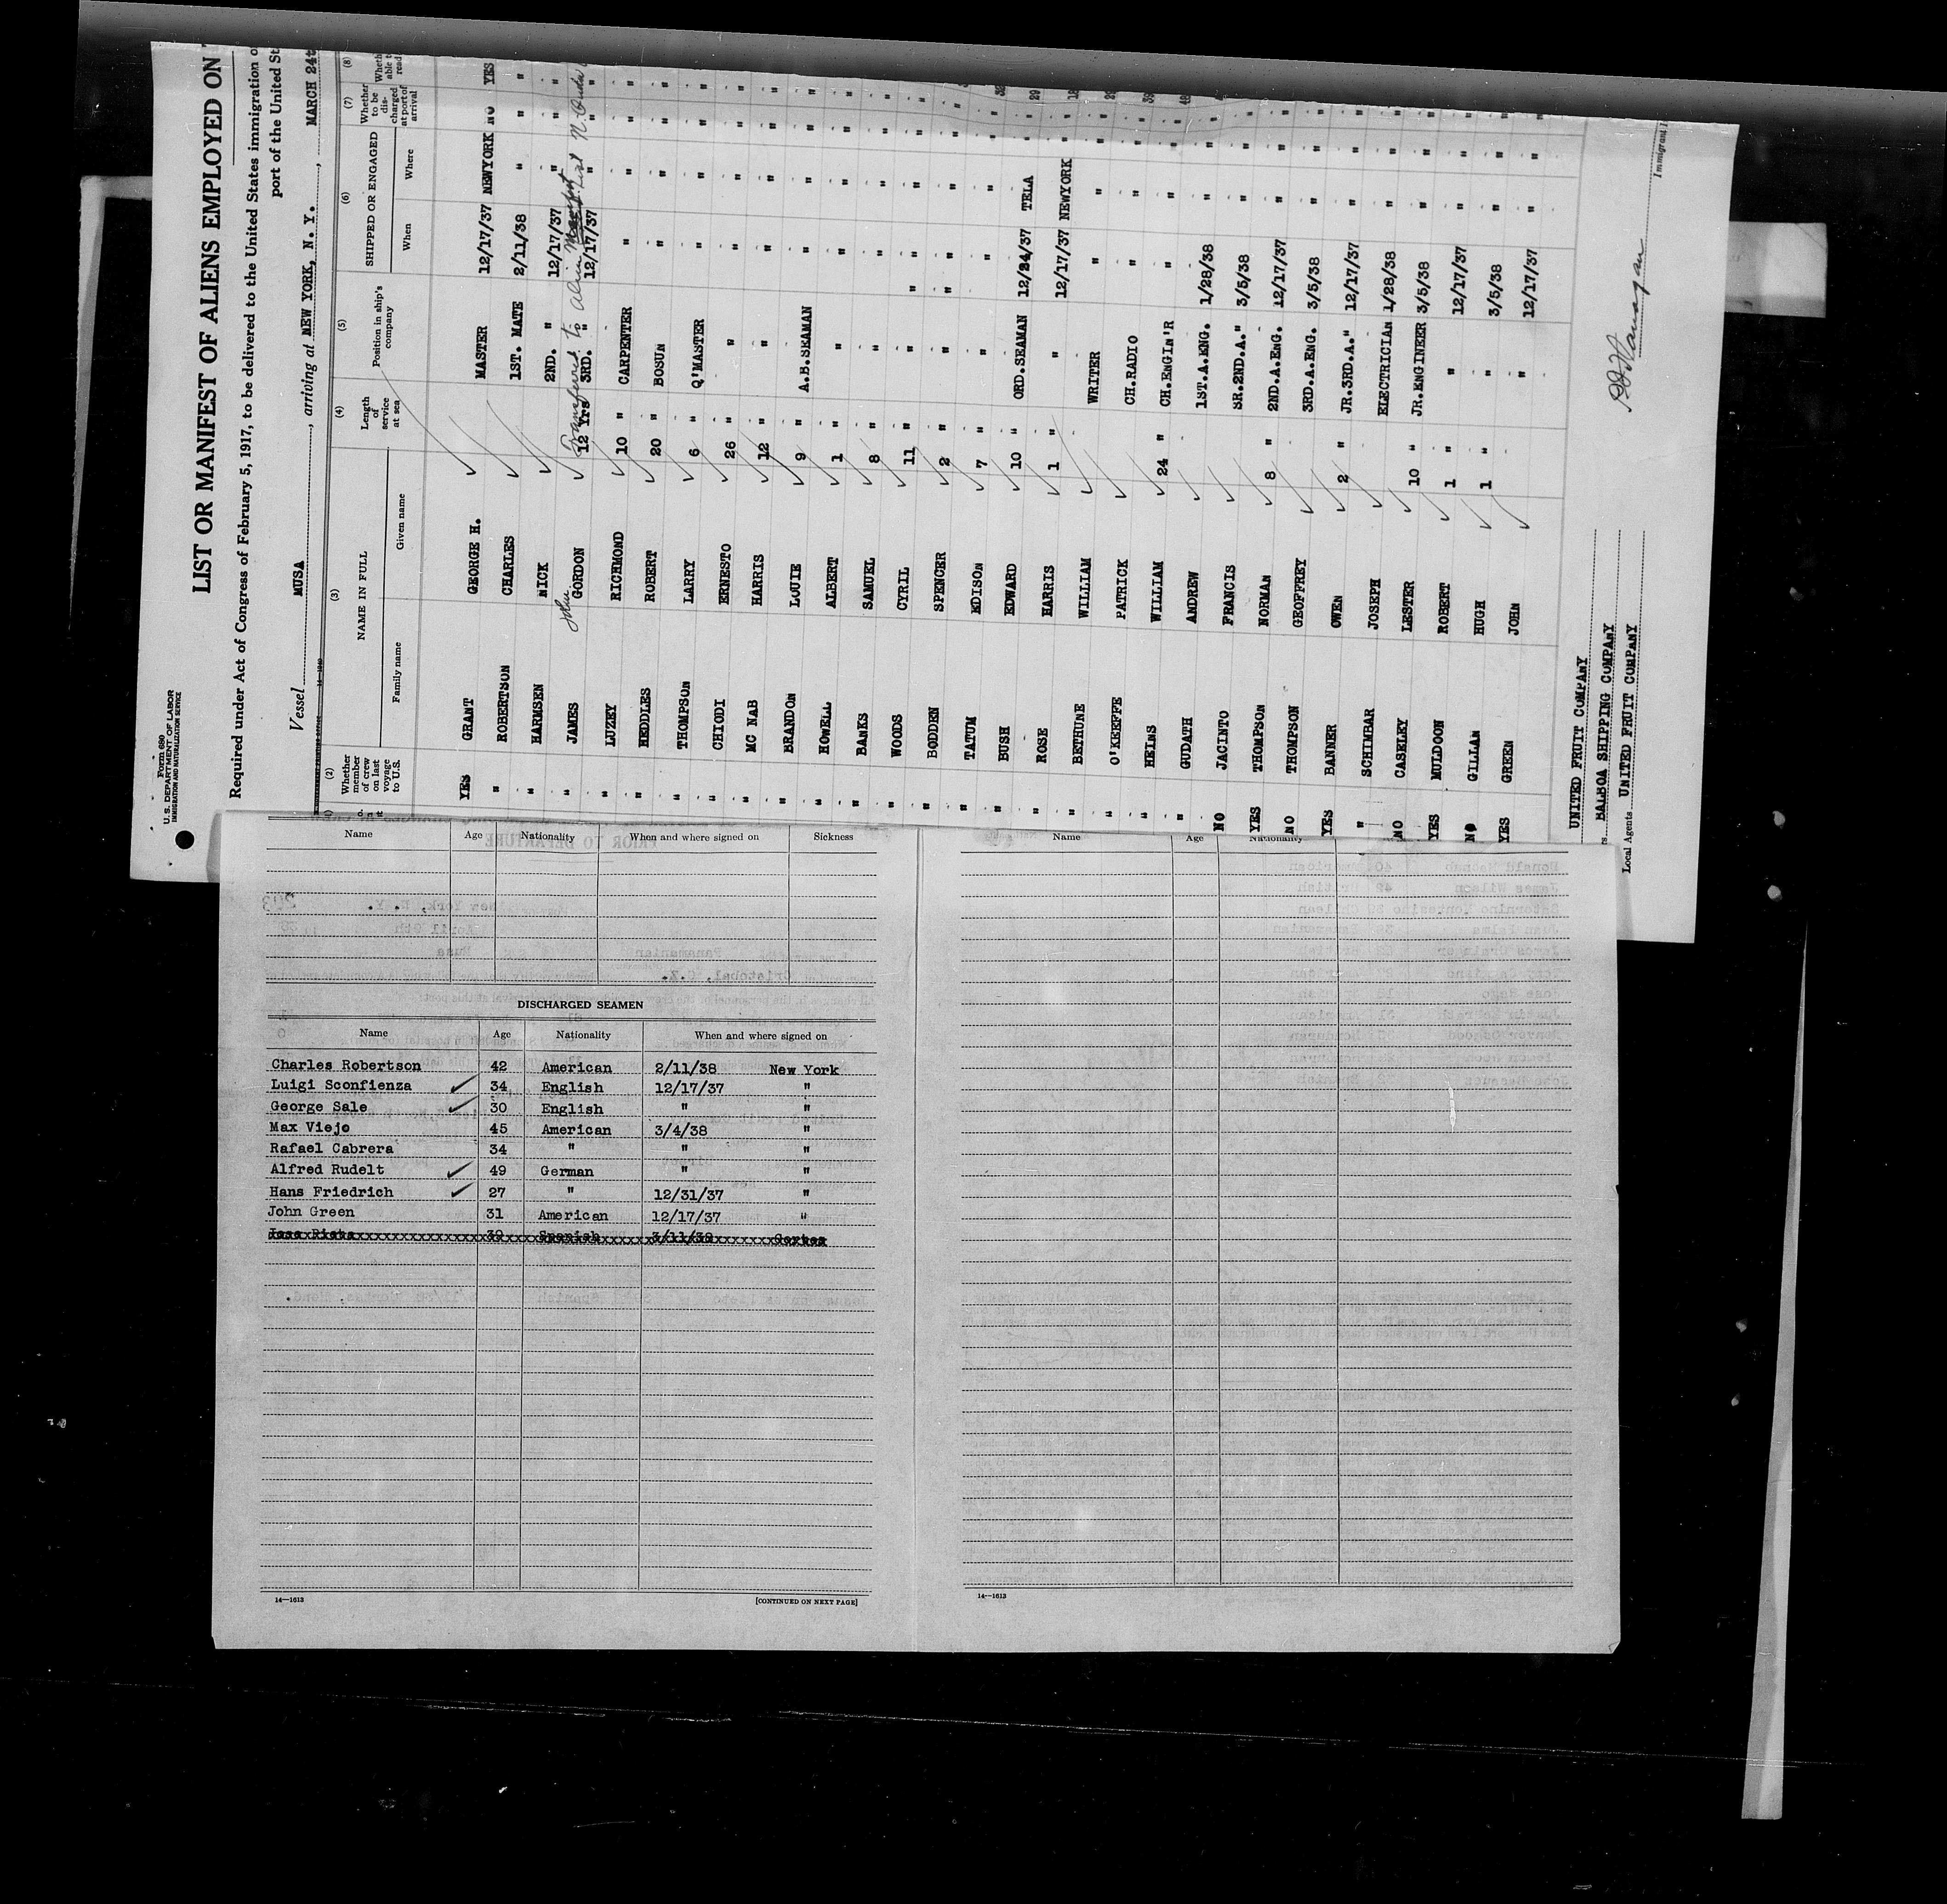 Form 680
U. S. DEPARTMENT OF LABOR
IMMIGRATION AND NATURALIZATION SERVICE
LIST OR MANIFEST OF ALIENS EMPLOYED ON
Required under Act of Congress of February 5, 1917, to be delivered to the United States immigration
port of the United
Vessel MUSA, arriving at NEW YORK, N. Y., MARCH 24
(2) (3) (4) (5) (6) (7) (8)
Whether member of crew on last voyage to U.S. NAME IN FULL Length of service at sea Position in ship's company SHIPPED OR ENGAGED Whether to be discharged at port of arrival
Family name Given name When Where
YES GRANT GEORGE H. MASTER 12/17/37 NEWYORK NO YES
" ROBERTSON CHARLES 1ST. MATE 2/11/38 " " "
" HARMSEN NICK 2ND. " 12/17/37 " " "
Transferred to Alien
" JAMES John GORDON 12 Yrs 3RD. " 12/17/37 " " "
" LUZEY RICHMOND 10 " CARPENTER " " " "
" HEDDLES ROBERT 20 " BOSUN " " " "
" THOMPSON LARRY 6 " Q'MASTER " " " "
" CHIODI ERNESTO 26 " " " " " "
" MC NAB HARRIS 12 " " " " " "
" BRANDON LOUIE 9 " A.B.SEAMAN " " " "
" HOWELL ALBERT 1 " " " " " "
" BANKS SAMUEL 8 " " " " " "
" WOODS CYRIL 11 " " " " " "
" BODDEN SPENCER 2 " " " " " "
" TATUM EDISON 7 " " " " "
" BUSH EDWARD 10 " ORD.SEAMAN 12/24/37 TELA " "
" ROSE HARRIS 1 " " 12/17/37 NEWYORK " "
" BETHUNE WILLIAM WRITER " " " "
" O'KEEFFE PATRICK CH.RADIO " " " "
" HEINS WILLIAM 24 " CH.ENGIN'R " " " "
" GUDATH ANDREW 1ST.A.ENG. 1/28/38 " "
NO JACINTO FRANCIS SR.2ND.A." 3/5/38 " "
YES THOMPSON NORMAN 8 " 2ND.A.ENG. 12/17/37 " "
NO THOMPSON GEOFFREY 3RD.A.ENG. 3/5/38 " "
YES BANNER OWEN 2 " JR.3RD.A." 12/17/37 " "
" SCHIMBAR JOSEPH ELECTRICIAN 1/28/38 " "
NO CASELEY LESTER 10 " JR.ENGINEER 3/5/38 " "
YES MULDOON ROBERT 1 " " 12/17/37 " "
NO GILLAN HUGH 1 " " 3/5/38 " "
YES GREEN JOHN " 12/17/37 " "
UNITED FRUIT COMPANY
BALBOA SHIPPING COMPANY
Local Agents UNITED FRUIT COMPANY
Immigrant
Name Age Nationality When and where signed on Sickness
Name Age Nationality
DISCHARGED SEAMEN
Name Age Nationality When and where signed on
Charles Robertson 42 American 2/11/38 New York
Luigi Sconfienza 34 English 12/17/37 "
George Sale 30 English " "
Max Viejo 45 American 3/4/38 "
Rafael Cabrera 34 " " "
Alfred Rudelt 49 German " "
Hans Friedrich 27 " 12/31/37 "
John Green 31 American 12/17/37 "
14—1613 [CONTINUED ON NEXT PAGE]
14—1613